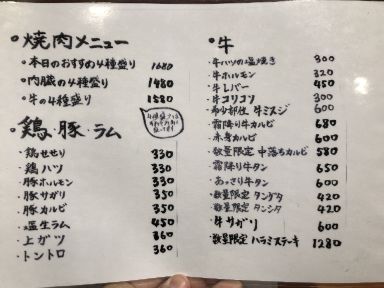 焼肉メニュー
・本日のおすすめ4種盛り 1680
・内臓の4種盛り 1480
・牛の4種盛り 1580
鶏・豚・ラム
・鶏せせり 330
・鶏ハツ 330
・豚ホルモン 330
・豚サガリ 350
・豚カルビ 350
・塩生ラム 450
・上ガツ 360
・トントロ 360
牛
・牛ハツの塩焼き 300
・牛ホルモン 320
・牛レバー 450
・牛コリコリ 300
・希少部位 牛ミスジ 600
・霜降り牛カルビ 680
・赤身カルビ 600
・数量限定 中落ちカルビ 580
・霜降り牛タン 650
・あっさり牛タン 600
・数量限定 タンゲタ 420
・数量限定 タンシタ 420
・牛サガリ 600
・数量限定 ハラミステーキ 1280